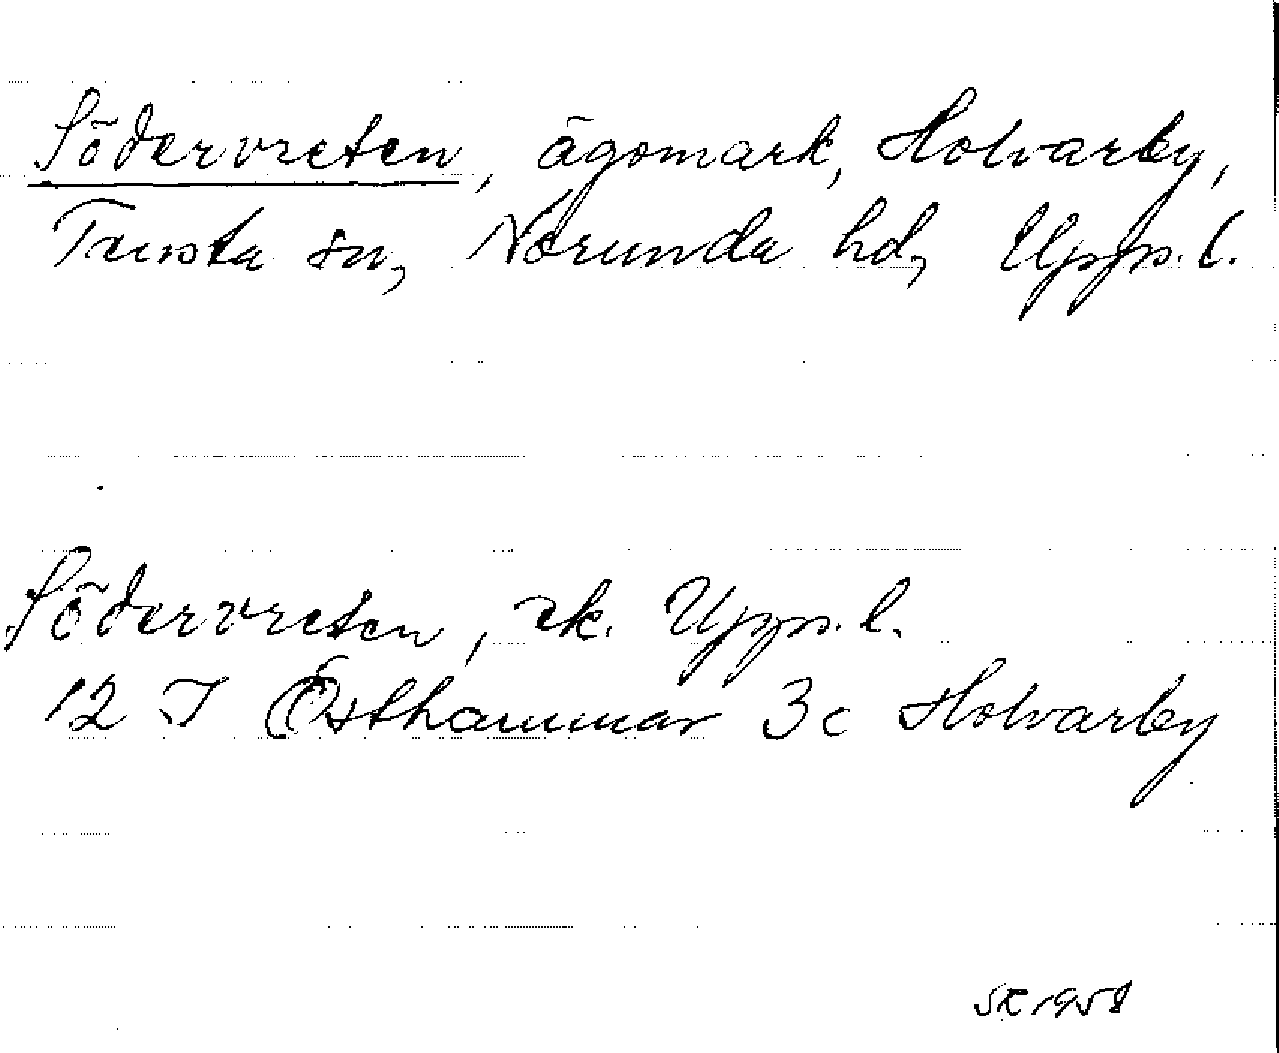 Södervreten, ägomark, Holvarby,
Tensta sn, Norunda hd, Upps. l.
Södervreten, ek. Upps. l.
12 I Östhammar 3c Holvarby
SR 1958